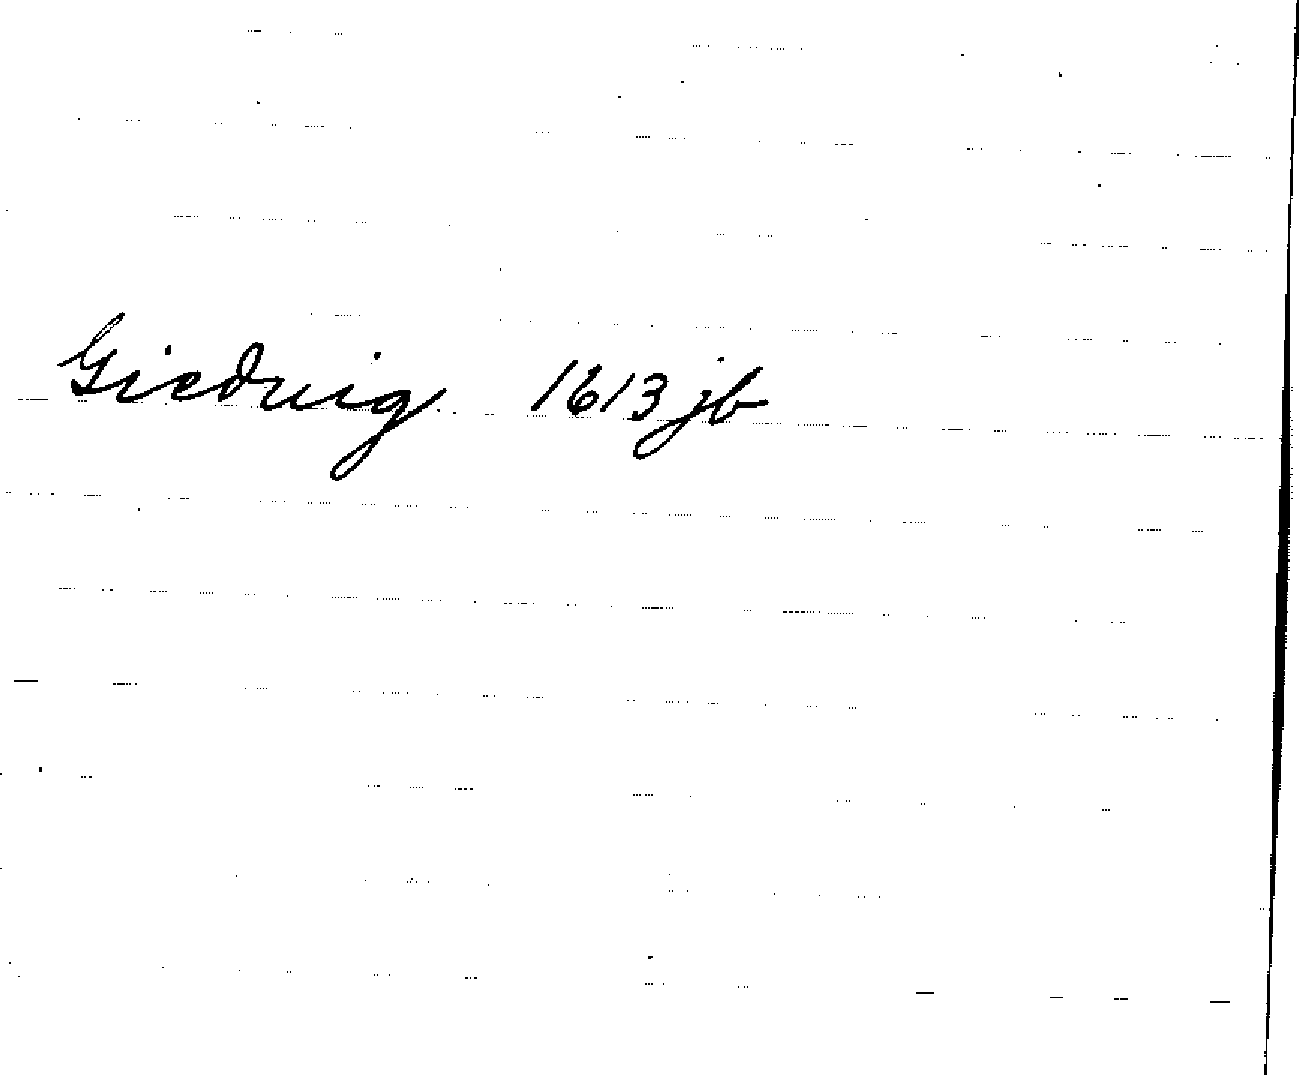 Giedwig 1613 jb